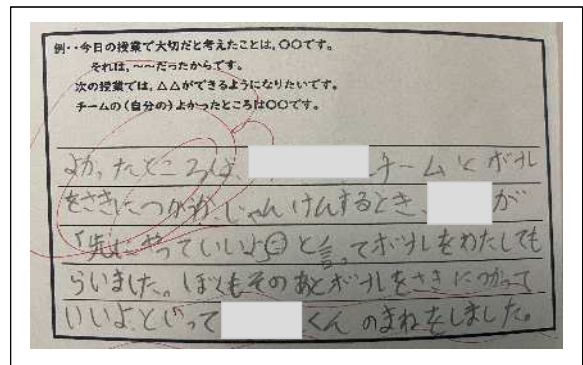 例・・今日の授業で大切だと考えたことは、〇〇です。
それは、~~だったからです。
次の授業では、△△ができるようになりたいです。
チームの(自分の)よかったところは〇〇です。
よかったところは、チームとボール
をさきにつかうか、じゃんけんするとき、が
「先にやっていいよ」と言ってボールをわたしても
らいました。ぼくもそのあとボールをさきにつかって
いいよといってくんのまねをしました。